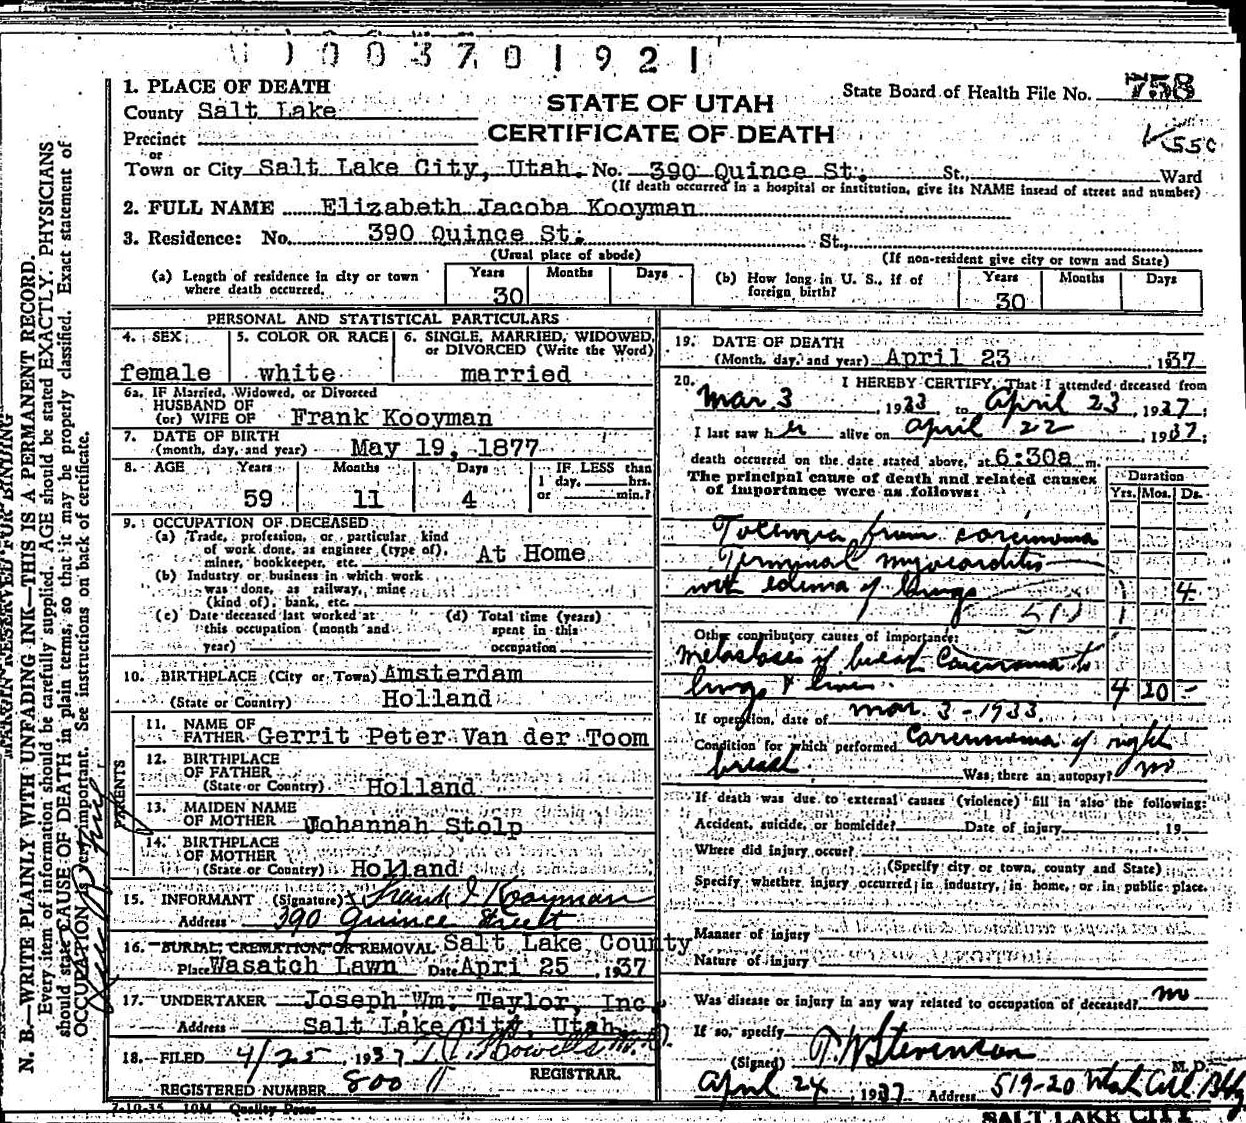 0 0 3 7 0 1 9 2 1
1. PLACE OF DEATH
County Salt Lake
Precinct
or
Town or City Salt Lake City, Utah. No. 390 Quince St. St., Ward
(If death occurred in a hospital or institution, give its NAME insead of street and number)
STATE OF UTAH
CERTIFICATE OF DEATH
State Board of Health File No. 758
55c
2. FULL NAME Elizabeth Jacoba Kooyman
3. Residence: No. 390 Quince St. St.,
(Usual place of abode) (If non-resident give city or town and State)
(a) Length of residence in city or town where death occurred. Years 30 Months Days
(b) How long in U. S., if of foreign birth? Years 30 Months Days
PERSONAL AND STATISTICAL PARTICULARS
4. SEX female
5. COLOR OR RACE white
6. SINGLE, MARRIED, WIDOWED, or DIVORCED (Write the Word) married
6a. IF Married, Widowed, or Divorced
HUSBAND OF
(or) WIFE OF Frank Kooyman
7. DATE OF BIRTH
(month, day, and year) May 19, 1877
8. AGE Years 59 Months 11 Days 4 IF LESS than 1 day, hrs. or min.?
9. OCCUPATION OF DECEASED
(a) Trade, profession, or particular kind
of work done, as engineer (type of),
miner, bookkeeper, etc. At Home
(b) Industry or business in which work
was done, as railway, mine
(kind of), bank, etc.
(c) Date deceased last worked at
this occupation (month and
year)
(d) Total time (years)
spent in this
occupation
10. BIRTHPLACE (City or Town) Amsterdam
(State or Country) Holland
PARENTS
11. NAME OF
FATHER Gerrit Peter Van der Toom
12. BIRTHPLACE
OF FATHER
(State or Country) Holland
13. MAIDEN NAME
OF MOTHER Johannah Stolp
14. BIRTHPLACE
OF MOTHER
(State or Country) Holland
15. INFORMANT (Signature) Frank I Kooyman
Address 390 Quince Street
16. BURIAL, CREMATION, OR REMOVAL Salt Lake County
Place Wasatch Lawn Date Apri 25, 1937
17. UNDERTAKER Joseph Wm. Taylor, Inc.
Address Salt Lake City, Utah.
18. FILED 4/25, 1937
REGISTRAR.
REGISTERED NUMBER 800
7-10-35 10M Quality Press
19. DATE OF DEATH
(Month, day, and year) April 23 1937
20. I HEREBY CERTIFY, That I attended deceased from
Mar. 3, 1933 to April 23, 1937;
I last saw her alive on April 22, 1937;
death occurred on the date stated above, at 6:30a m.
The principal cause of death and related causes
of importance were as follows:
Duration
Yrs. Mos. Ds.
Toxemia from carcinoma
Terminal myocarditis
with edema of lungs 4
Other contributory causes of importance:
Metastases of breast Carcinoma to
lungs & liver 4 20 -
If operation, date of Mar 3-1933.
Condition for which performed Carcinoma of right
breast. Was there an autopsy? no
If death was due to external causes (violence) fill in also the following:
Accident, suicide, or homicide? Date of injury 19
Where did injury occur?
(Specify city or town, county and State)
Specify whether injury occurred in industry, in home, or in public place.
Manner of injury
Nature of injury
Was disease or injury in any way related to occupation of deceased? no
If so, specify
(Signed) Stevenson M. D.
April 24, 1937 Address 519-20 Utah
SALT LAKE CITY
MARGIN RESERVED FOR BINDING
N. B.—WRITE PLAINLY WITH UNFADING INK—THIS IS A PERMANENT RECORD.
Every item of information should be carefully supplied. AGE should be stated EXACTLY. PHYSICIANS
should state CAUSE OF DEATH in plain terms, so that it may be properly classified. Exact statement of
OCCUPATION is very important. See instructions on back of certificate.